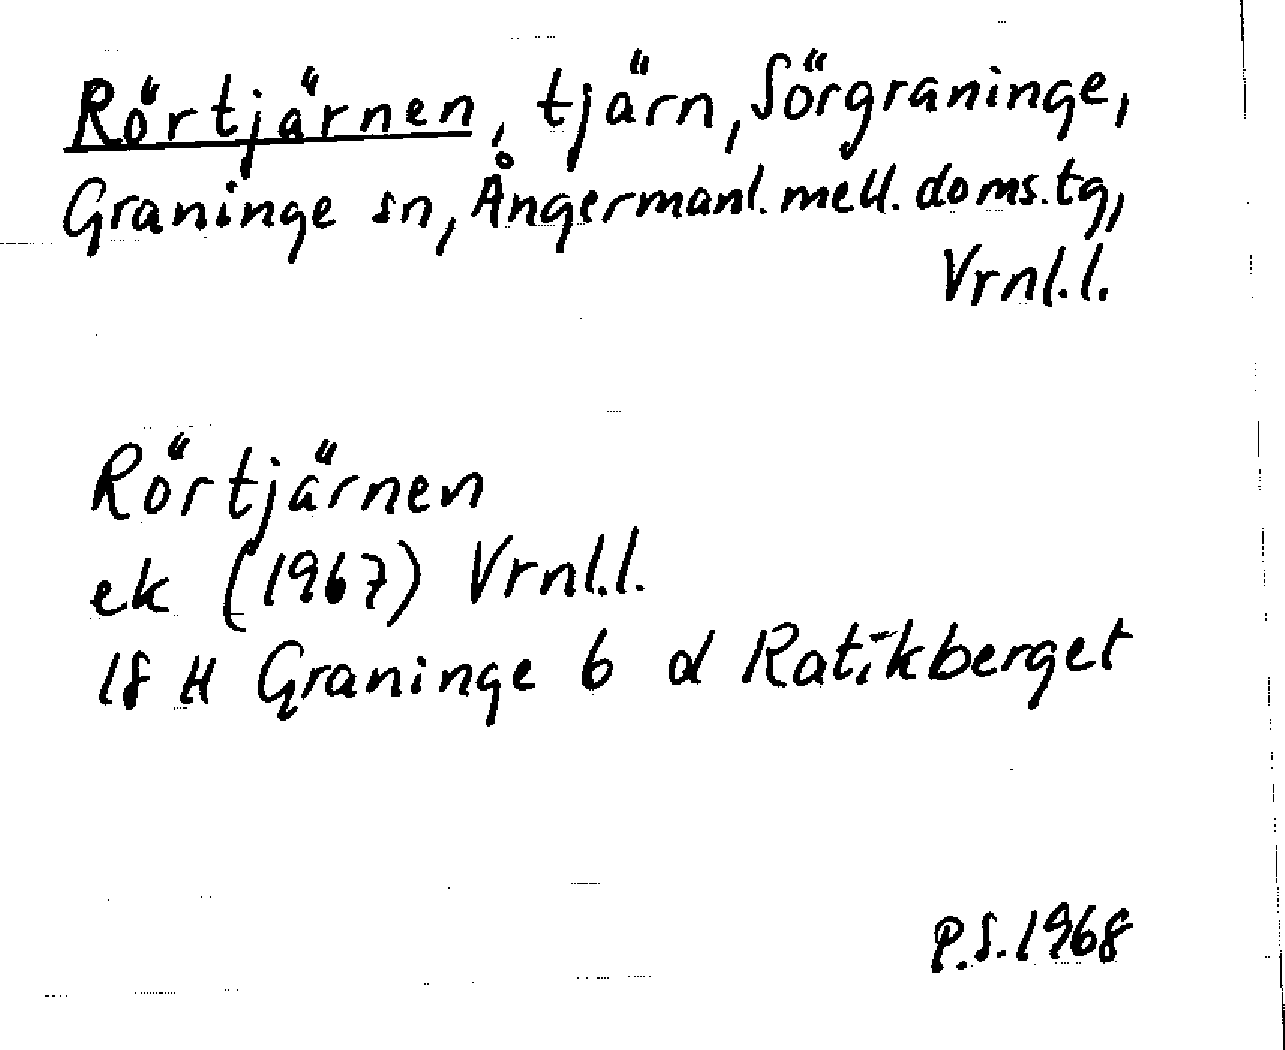 Rörtjärnen, tjärn, Sörgraninge,
Graninge sn, Ångermanl. mell. doms. tg,
Vrnl.l.
Rörtjärnen
ek (1967) Vrnl.l.
18 H Graninge 6 d Ratikberget
P.S. 1968